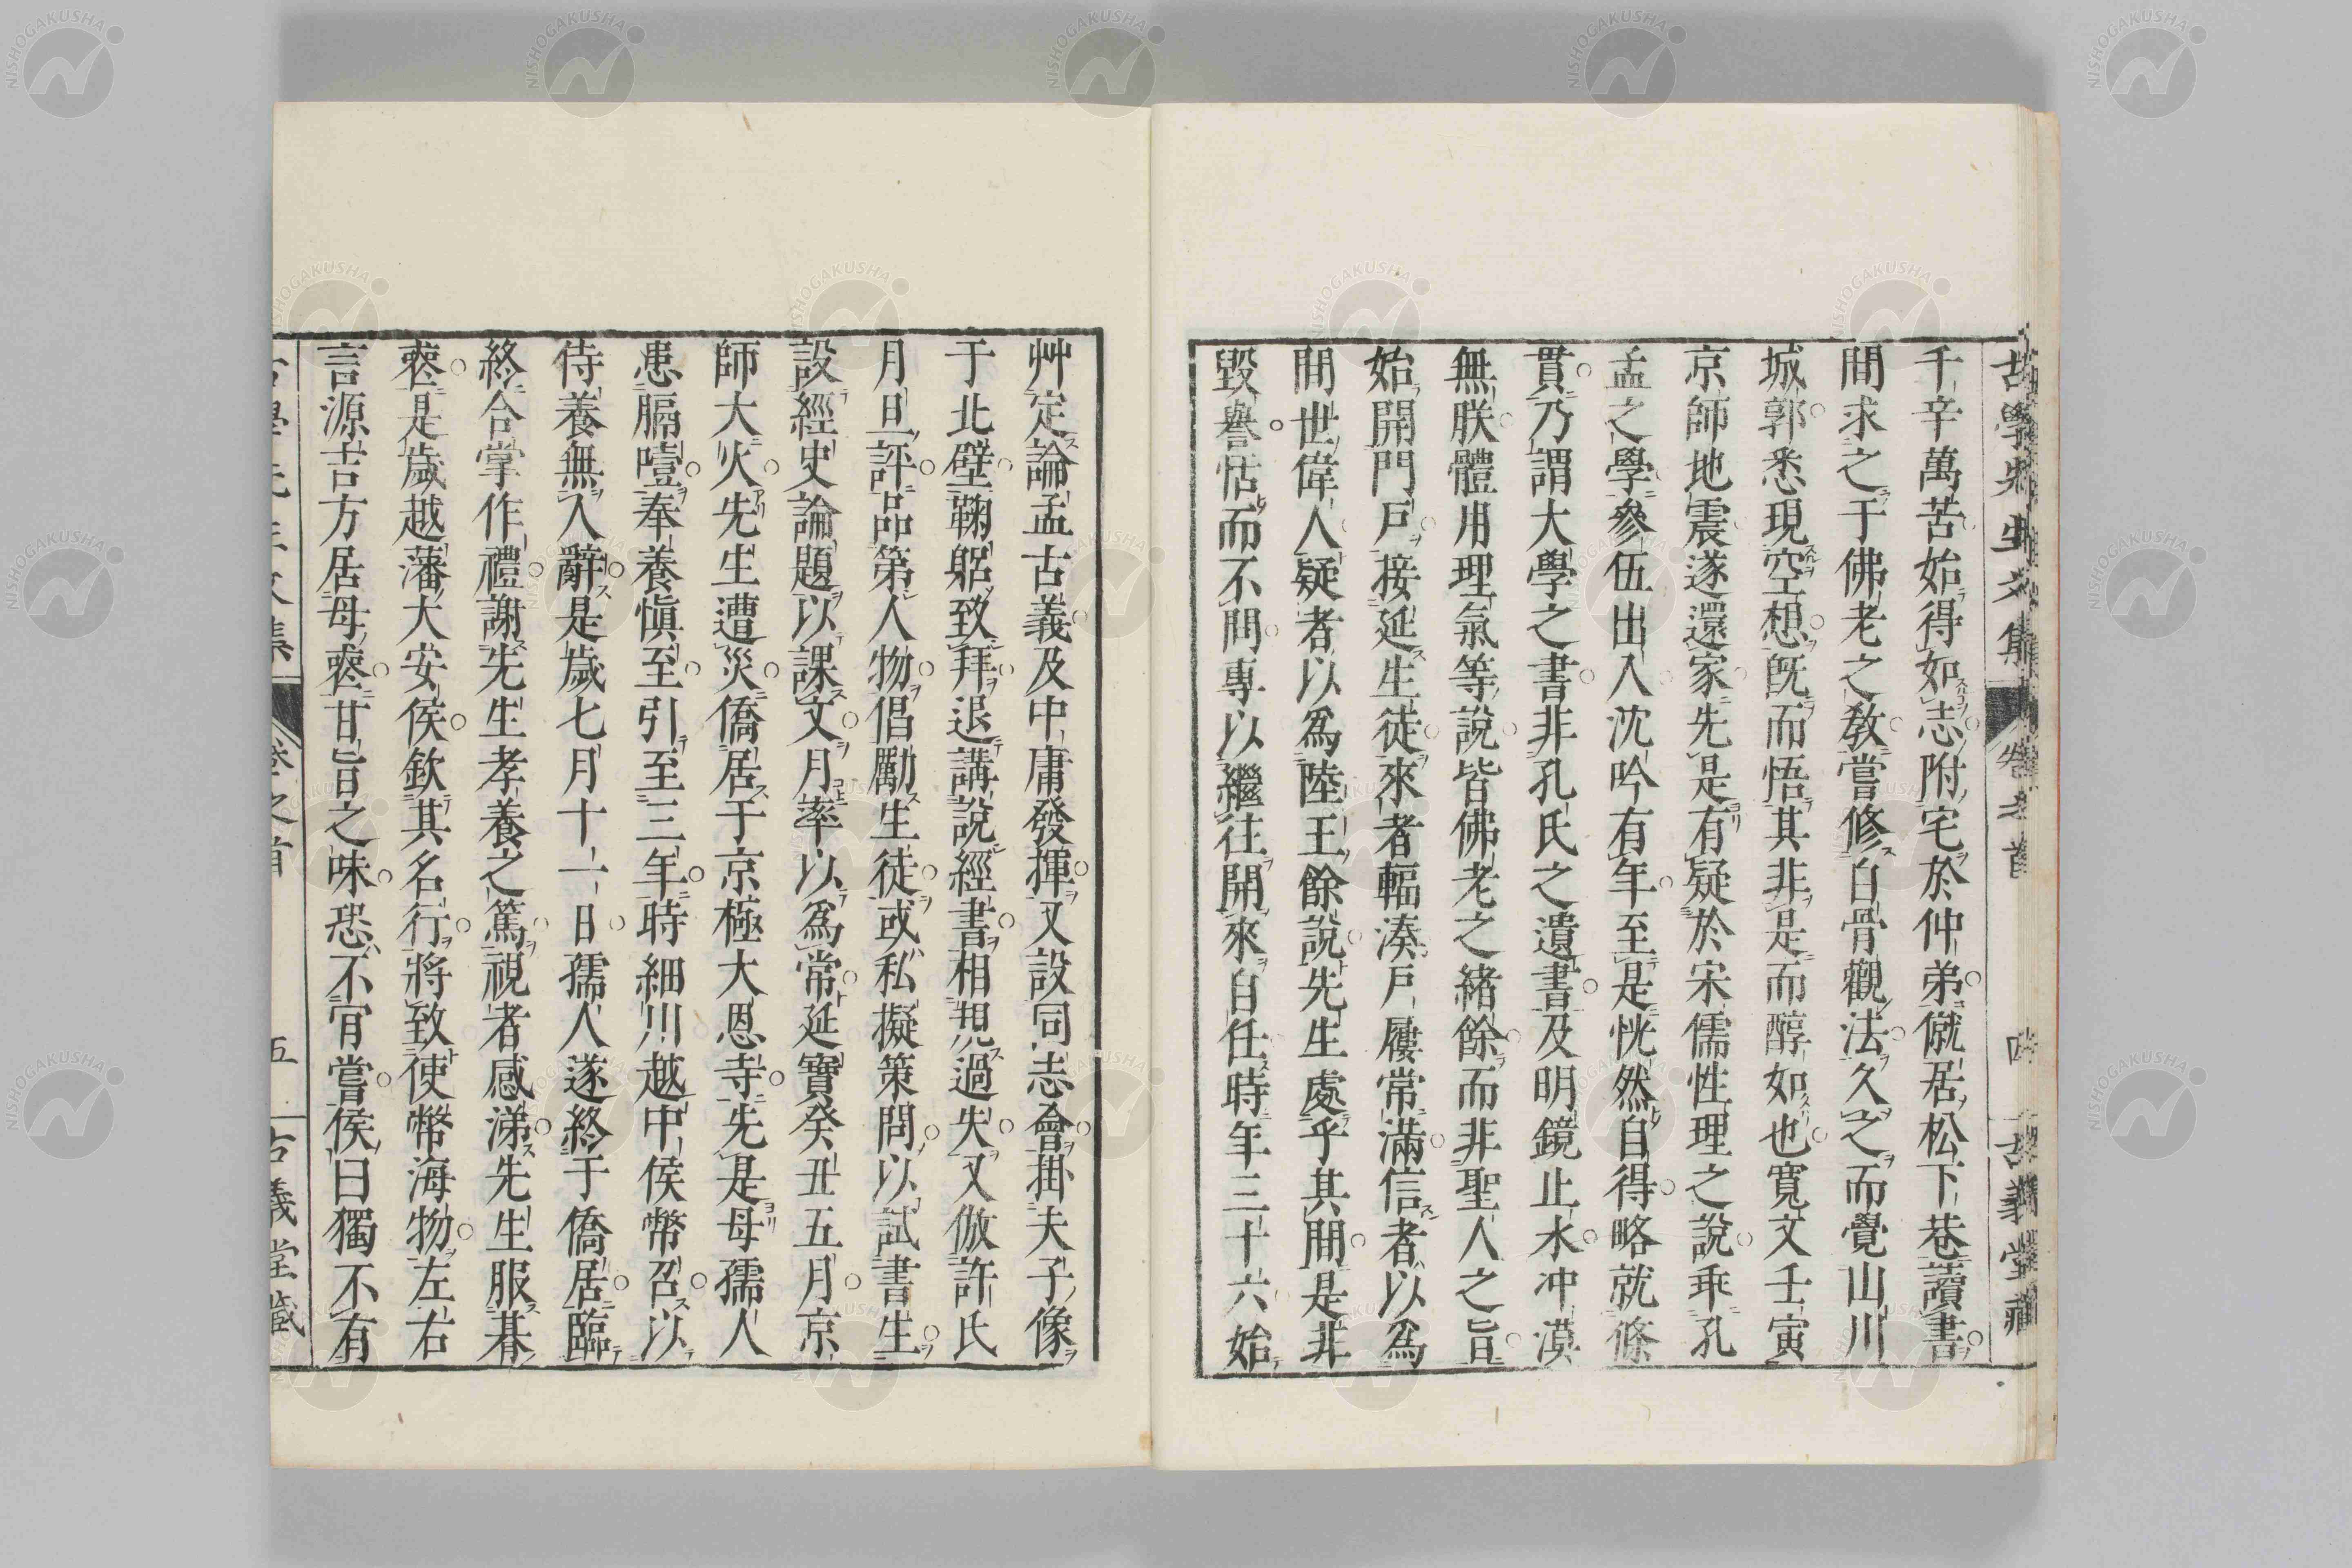 古學先生文集 卷之首 四 古義堂藏
千辛萬苦始得如志附宅於仲弟僦居松下巷讀書
間求之于佛老之教嘗修白骨觀法久之而覺山川
城郭悉現空想既而悟其非是而醇如也寬文壬寅
京師地震遂還家先是有疑於宋儒性理之說乖孔
孟之學參伍出入沈吟有年至是恍然自得略就條
貫乃謂大學之書非孔氏之遺書及明鏡止水冲漠
無朕體用理氣等說皆佛老之緒餘而非聖人之旨
始開門戶接延生徒來者輻湊戶屨常滿信者以爲
間世偉人疑者以爲陸王餘說先生處乎其間是非
毀譽恬而不問專以繼往開來自任時年三十六始
艸定論孟古義及中庸發揮又設同志會掛夫子像
于北壁鞠躬致拜退講說經書相規過失又倣許氏
月旦評品第人物倡勵生徒或私擬策問以試書生
設經史論題以課文月率以爲常延寶癸丑五月京
師大火先生遭災僑居于京極大恩寺先是母孺人
患膈噎奉養愼至引至三年時細川越中侯幣召以
侍養無人辭是歲七月十一日孺人遂終于僑居臨
終合掌作禮謝先生孝養之篤視者感涕先生服朞
䘮是歲越藩大安侯欽其名行將致使幣海物左右
言源吉方居母䘮甘旨之味恐不肎嘗侯曰獨不有
古學先生文集 卷之首 五 古義堂藏